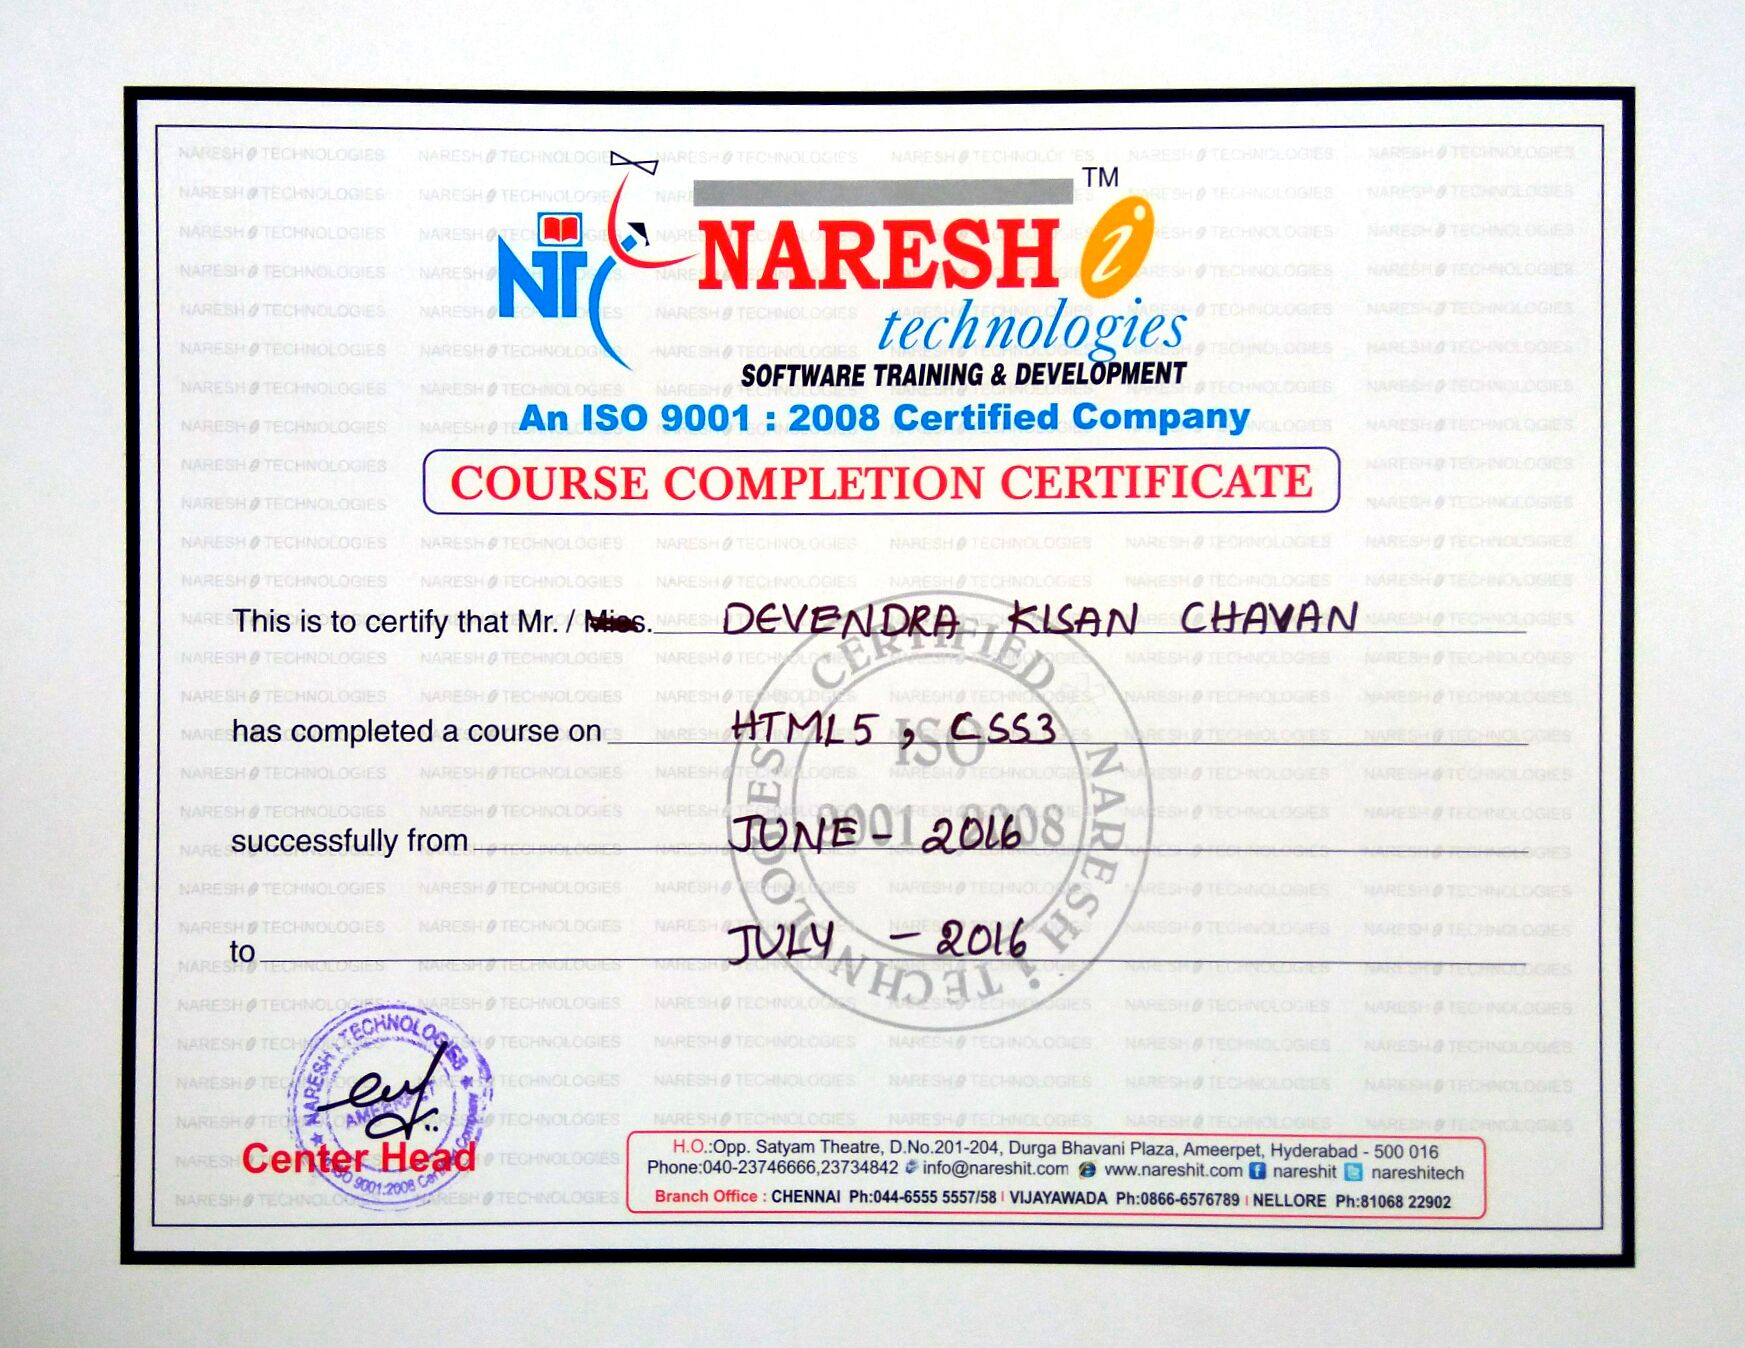 TM
NTi NARESH i
technologies
SOFTWARE TRAINING & DEVELOPMENT
An ISO 9001 : 2008 Certified Company
COURSE COMPLETION CERTIFICATE
This is to certify that Mr. / Miss. DEVENDRA KISAN CHAVAN
has completed a course on HTML5 , CSS3
successfully from JUNE - 2016
to JULY - 2016
CERTIFIED NARESH i TECHNOLOGIES
ISO
9001 2008
NARESH i TECHNOLOGIES
AMEERPET
ISO 9001:2008 Certified Company
Center Head
H.O.:Opp. Satyam Theatre, D.No.201-204, Durga Bhavani Plaza, Ameerpet, Hyderabad - 500 016
Phone:040-23746666,23734842 info@nareshit.com www.nareshit.com nareshit nareshitech
Branch Office : CHENNAI Ph:044-6555 5557/58 | VIJAYAWADA Ph:0866-6576789 | NELLORE Ph:81068 22902